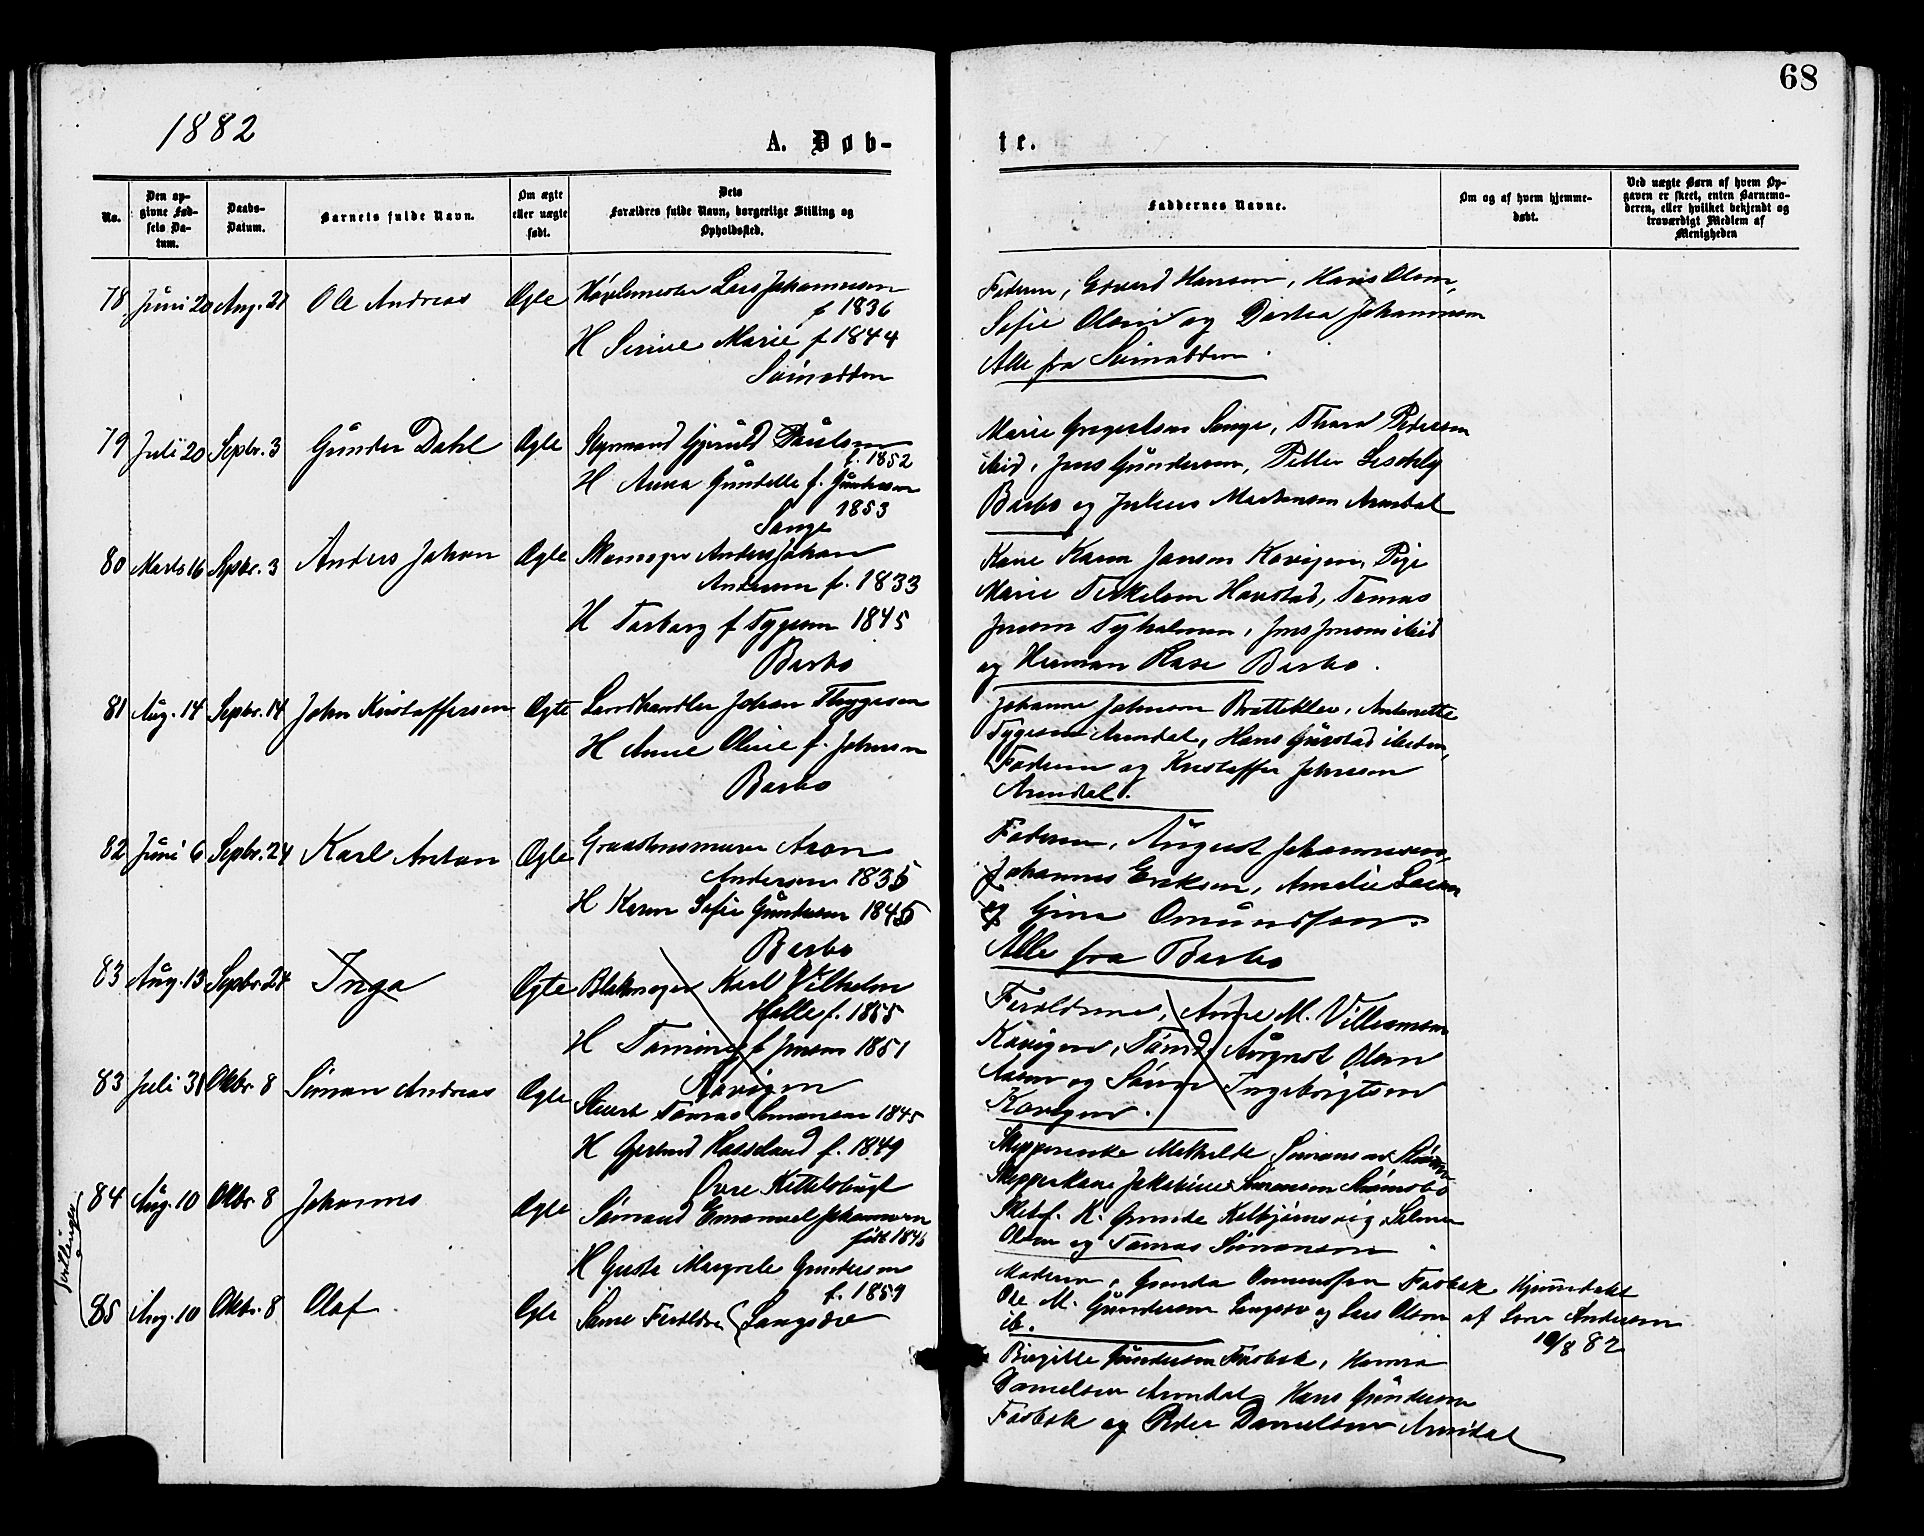 68
1882
A. Døb-
te.
No.
Den op-
givne Fød-
sels Da-
tum.
Daabs-
Datum.
Barnets fulde Navn.
Om ægte
eller uægte
født.
Dets
Forældres fulde Navn, borgerlige Stilling og
Opholdssted.
Faddernes Navne.
Om og af hvem hjemme-
døbt.
Ved uægte Børn af hvem Op-
gaven er skeet, enten Barnemo-
deren, eller hvilket bekjendt og
troværdigt Medlem af
Menigheden
78 Juni 20 Aug. 27 Ole Andreas Ægte Lars Johannesen
f 1836
H Serine Marie f 1844
Faderen, Edvard Hansen, Hans Olsen,
Sofie Olsen og Dorthea Johannesen
Alle fra
79 Juli 20 Sepbr. 3 Gunder Dahl Ægte Styrmand Gjeruld Paulsen
f. 1852
H Anna Gundelle f. Gundersen
1853
Songe
Marie Gregertsen Songe, Thara Pedersen
ibid, Jens Gundersen, Petter
Barbo og Julius Martensen Arendal
80 Marts 16 Sepbr. 3 Anders Johan Ægte Skomager Anders Johan
Andersen f. 1833
H Torborg f Tygesen 1845
Barbo
Kone Karen Jansen Kovigen, Pige
Marie Terkelsen Havstad, Tomas
Jensen Tyholmen, Jens Jensen ibid
og Herman Hase Barbo.
81 Aug. 14 Sepbr. 14 John Kristoffersen Ægte Landhandler Johan Thygesen
H Anne Oline f. Johnsen
Barbo
Johanne Johnsen Bratteklev, Antonette
Tygesen Arendal, Hans Gurstad ibidem,
Faderen og Kristoffer Johnsen
Arendal.
82 Juni 6 Sepbr. 24 Karl Anton Ægte Graastensmurer Aron
Andersen 1835
H Karen Sofie Gundersen 1845
Barbo
Faderen, August Johannesen,
Johannes Eriksen, Amalie Larsen
og Gina Omundsen.
Alle fra Barbo
83 Aug. 13 Sepbr. 24 Inga Ægte Blokmager Karl Vilhelm
Halle f. 1855
H Tomine f Jensen 1851
Kovigen
Forældrene, Anne M. Villumsen
Kovigen, Tømd. August Olsen
og Søren Ingebrigtsen
Kovigen.
83 Juli 31 Oktbr 8 Simon Andreas Ægte Stuert Tomas Simonsen 1845
H Gjertrud Rosseland f. 1849
Øvre Kittelsbugt
Skipperenke Mathilde Simonsen
Skipperkone Jakobine Sørensen
K. Grunde Kolbjørnsvig, Selmer
Olsen og Tomas Simonsen
Tvillinger
84 Aug. 10 Oktbr 8 Johannes Ægte Sømand Emanuel Johannesen
født 1846
H Gusta Margrete Gundersen
f. 1859
Moderen, Gunda Omundsen Færbek Hjemmedøbt
Ole M. Gundersen Langsæv og Lars Olsen af Lars Andersen
ib. 10/8 82
85 Aug. 10 Oktbr. 8 Olaf Ægte Samme Forældre Langsæv
Birgitte Gundersen Færbek, Hanna
Danielsen Arendal, Hans Gundersen
Færbek og Peder Danielsen Arendal